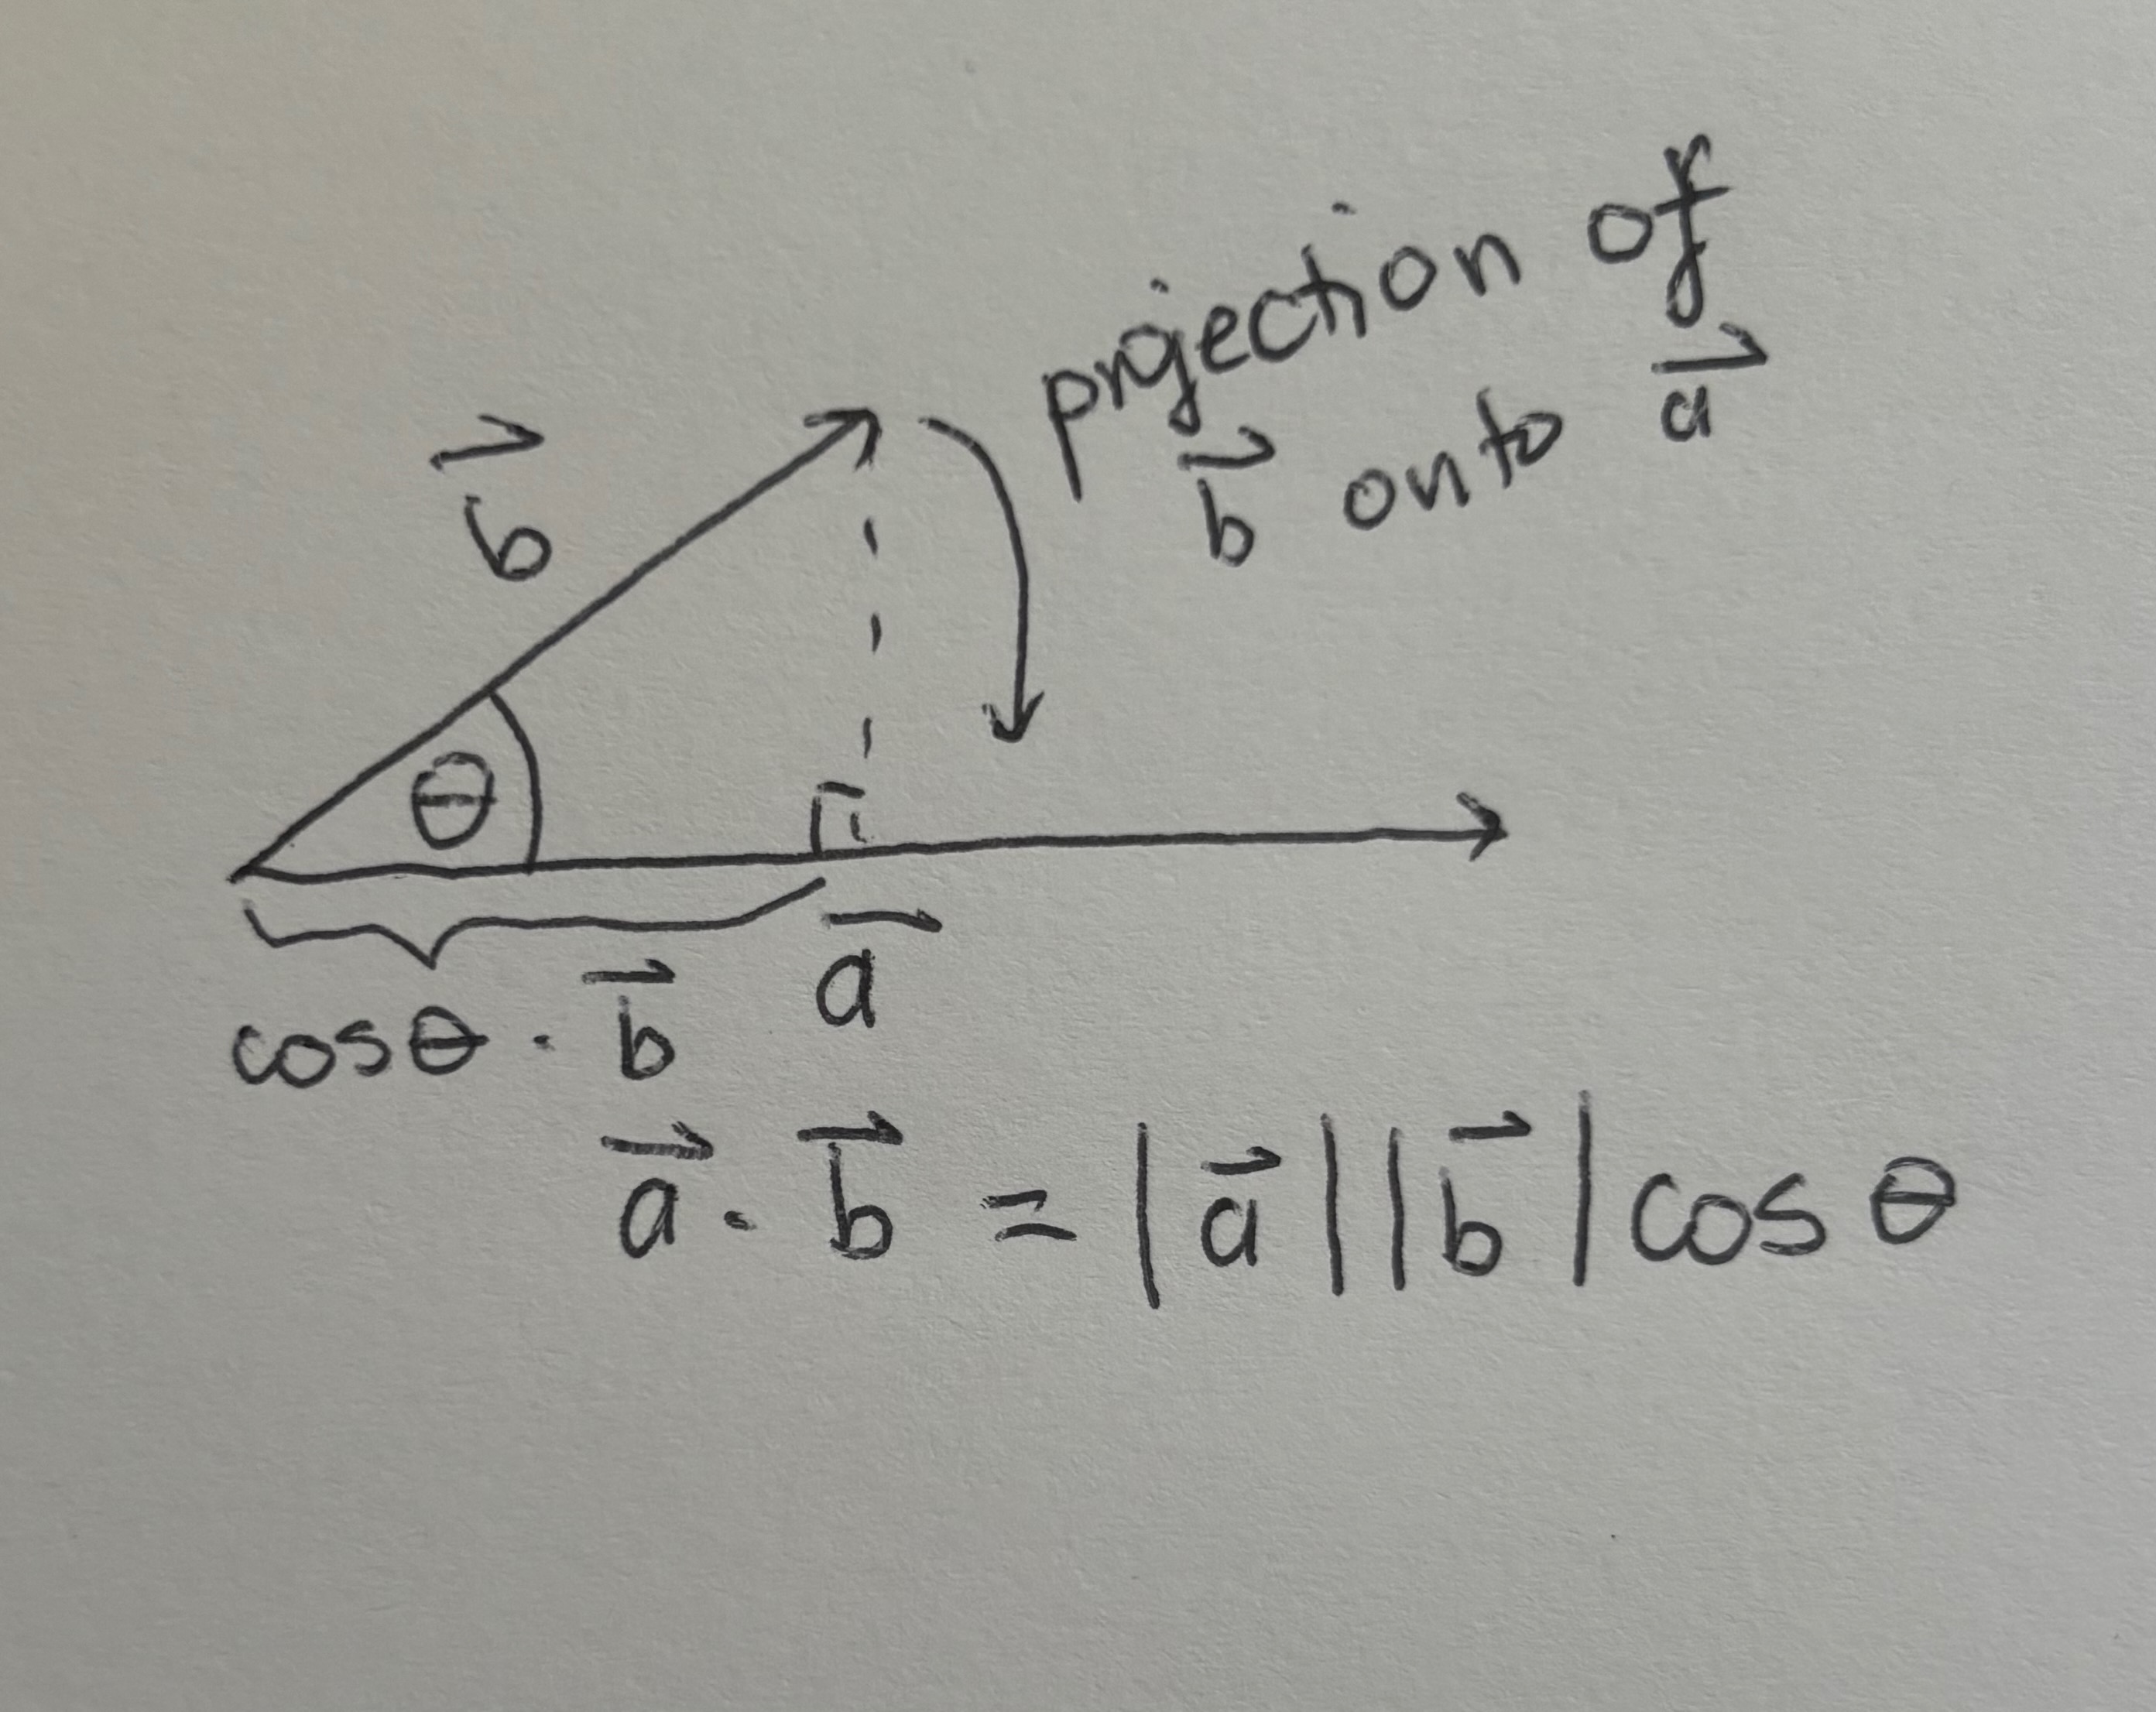 projection of
b⃗ onto a⃗
b⃗
θ
a⃗
cosθ · b⃗
a⃗ · b⃗ = |a⃗||b⃗| cos θ